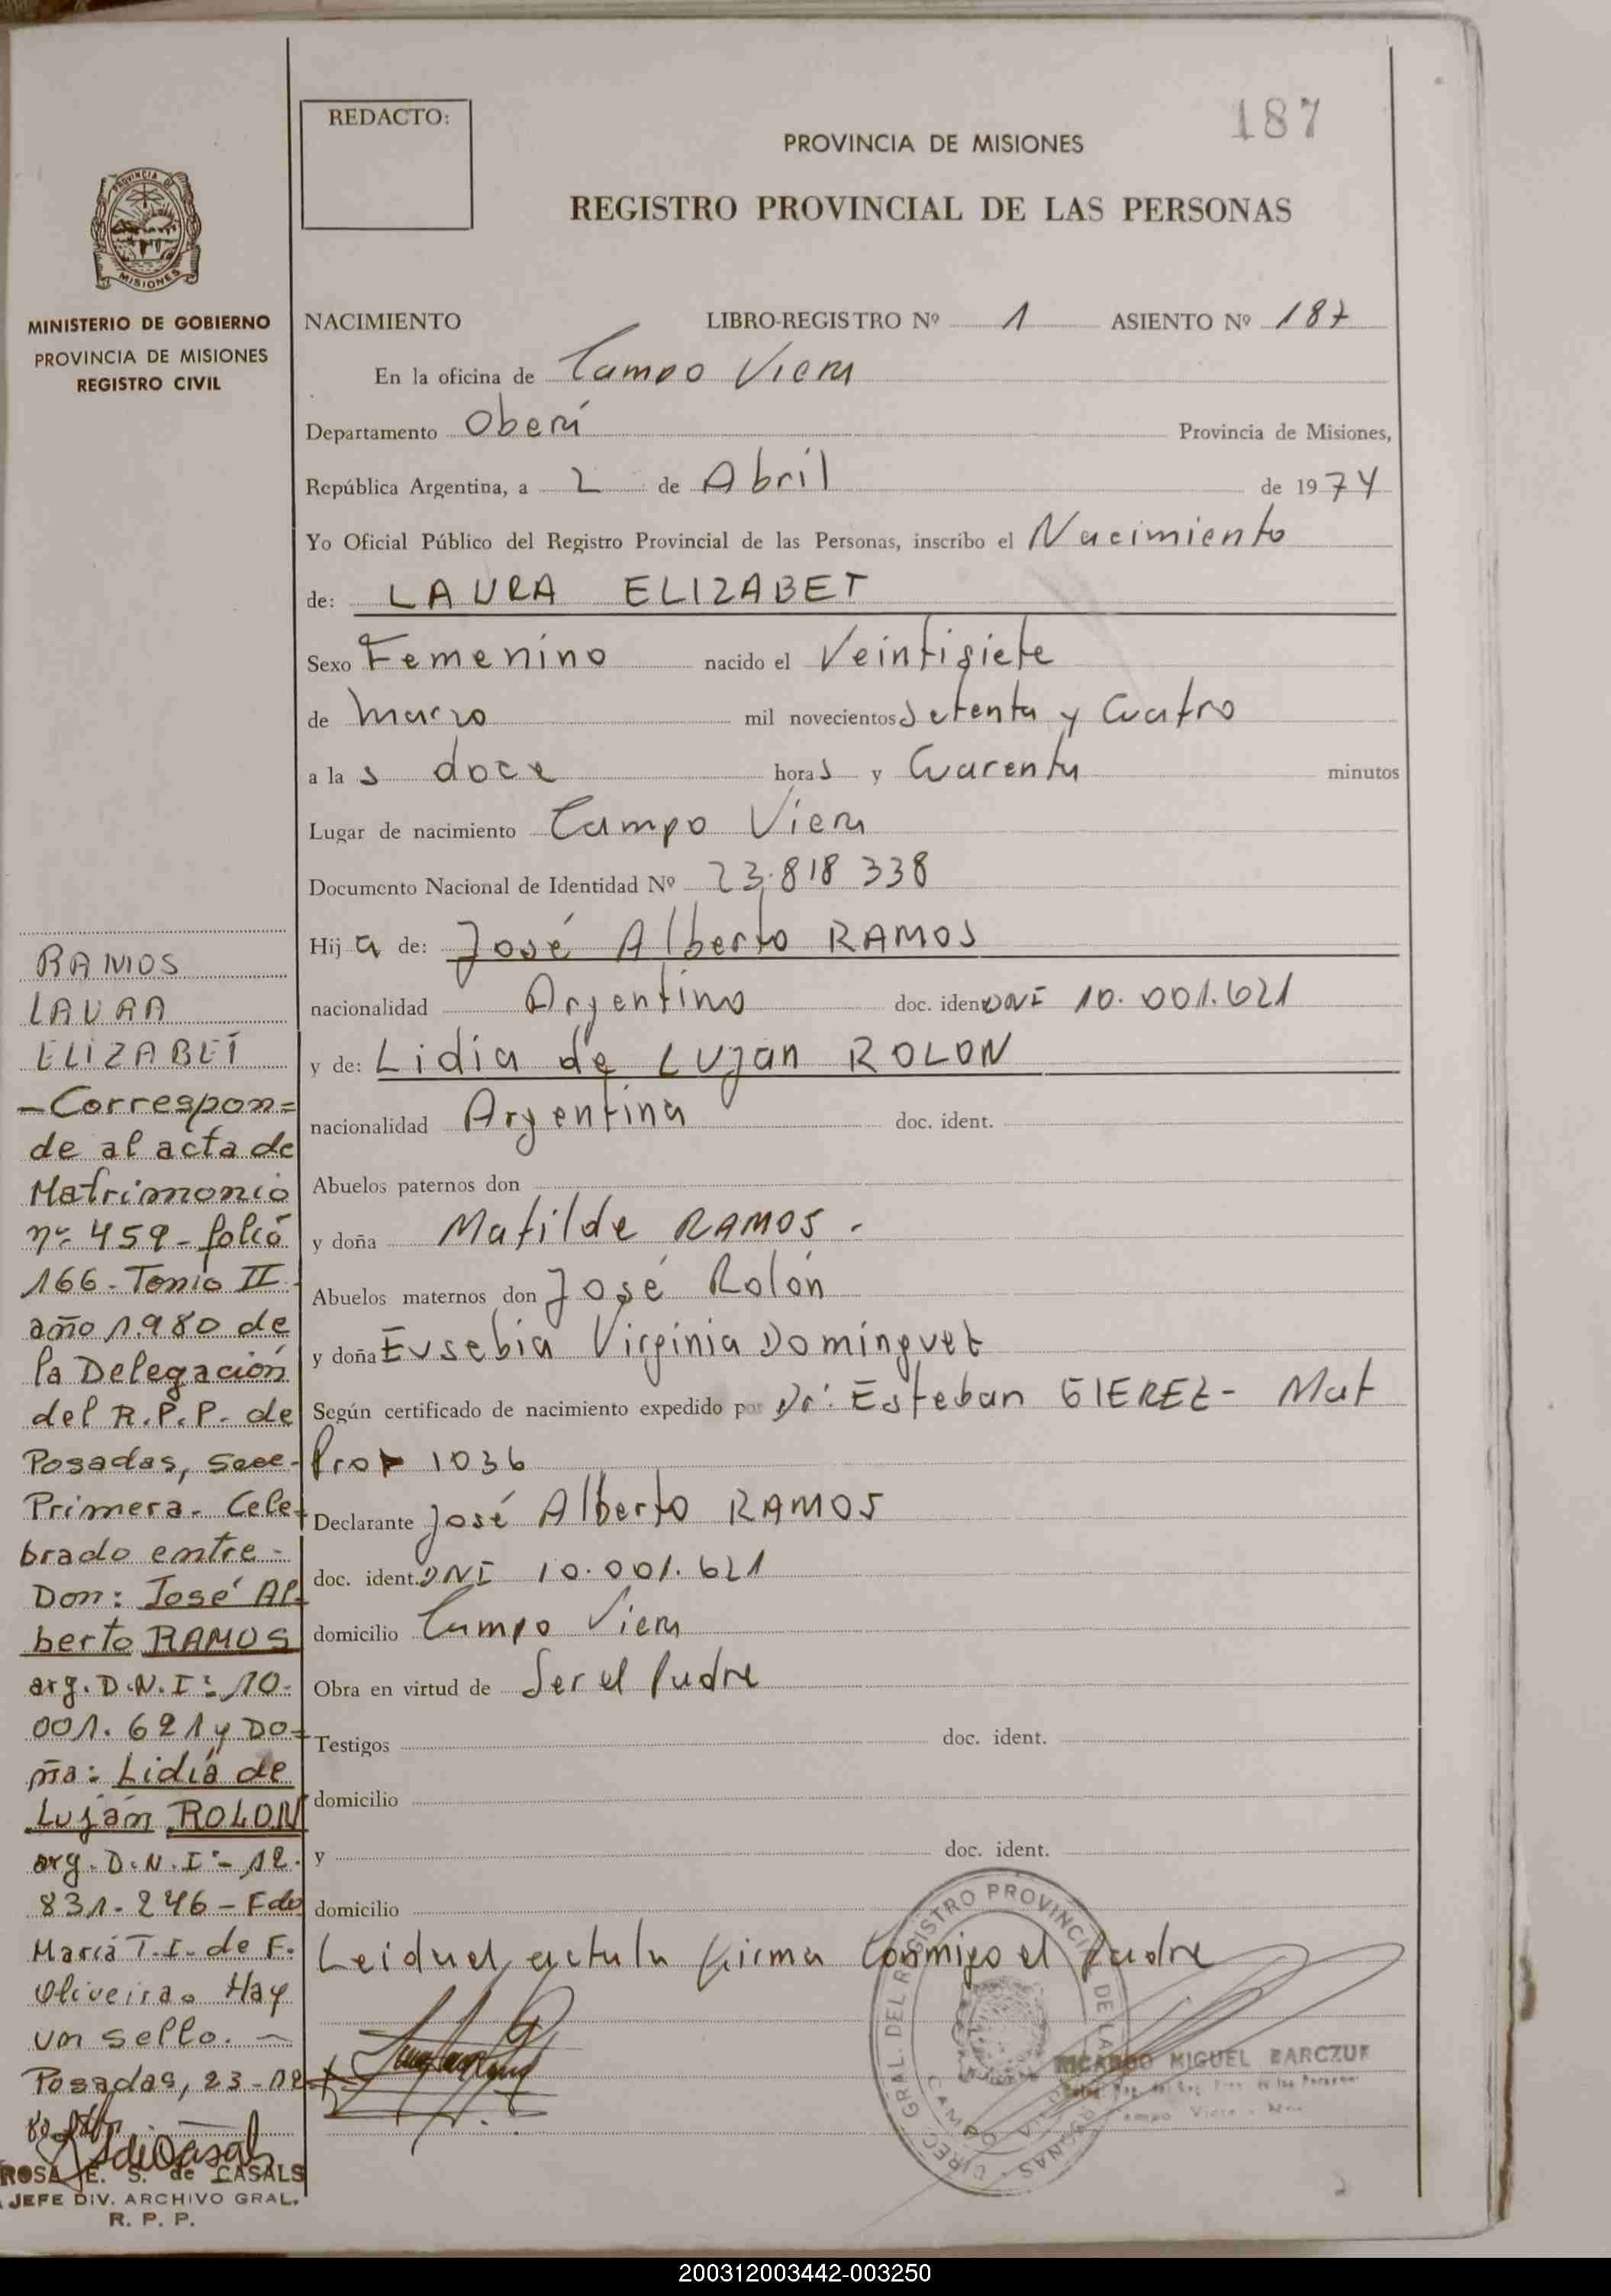 187
REDACTO:
PROVINCIA DE MISIONES
REGISTRO PROVINCIAL DE LAS PERSONAS
PROVINCIA DE
MISIONES
MINISTERIO DE GOBIERNO
PROVINCIA DE MISIONES
REGISTRO CIVIL
NACIMIENTO LIBRO-REGISTRO Nº 1 ASIENTO Nº 187
En la oficina de Campo Viera
Departamento Oberá Provincia de Misiones,
República Argentina, a 2 de Abril de 1974
Yo Oficial Público del Registro Provincial de las Personas, inscribo el Nacimiento
de: LAURA ELIZABET
Sexo Femenino nacido el Veintisiete
de Marzo mil novecientos Setenta y Cuatro
a las doce horas y Cuarenta minutos
Lugar de nacimiento Campo Viera
Documento Nacional de Identidad Nº 23.818 338
Hija de: José Alberto RAMOS
nacionalidad Argentino doc. iden DNI 10.001.621
y de: Lidia de Lujan ROLON
nacionalidad Argentina doc. ident.
Abuelos paternos don
y doña Matilde RAMOS.
Abuelos maternos don José Rolón
y doña Eusebia Virginia Dominguez
Según certificado de nacimiento expedido por Dr: Esteban GIEREZ- Mat
Prof 1036
Declarante José Alberto RAMOS
doc. ident. DNI 10.001.621
domicilio Campo Viera
Obra en virtud de Ser el Padre
Testigos doc. ident.
domicilio
y doc. ident.
domicilio
Leida el acta la firma Conmigo el Padre
RAMOS
LAURA
ELIZABET
- Correspon=
de al acta de
Matrimonio
nº 459 - folio
166 - Tomo II
año 1.980 de
la Delegación
del R.P.P. de
Posadas, secc-
Primera. Cele-
brado entre -
Don: José Al-
berto RAMOS
arg. D.N.I: 10-
001.621 y Do=
ña: Lidia de
Luján ROLON
arg. D.N.I:- 12.
831-246 - Fdo
María T.I. de F.
Oliveira. Hay
un sello. -
Posadas, 23-12
80
ROSA E. S. de CASALS
JEFE DIV. ARCHIVO GRAL.
R. P. P.
DIREC. GRAL. DEL REGISTRO PROVINCIAL DE LAS PERSONAS
CAMPO VIERA
RICARDO MIGUEL BARCZUK
200312003442-003250